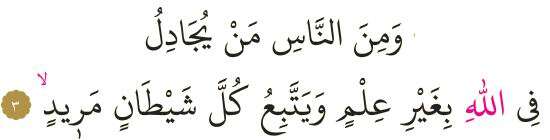 وَمِنَ النَّاسِ مَنْ يُجَادِلُ
فِى اللّٰهِ بِغَيْرِ عِلْمٍ وَيَتَّبِعُ كُلَّ شَيْطَانٍ مَرٖيدٍۙ ﴿٣﴾